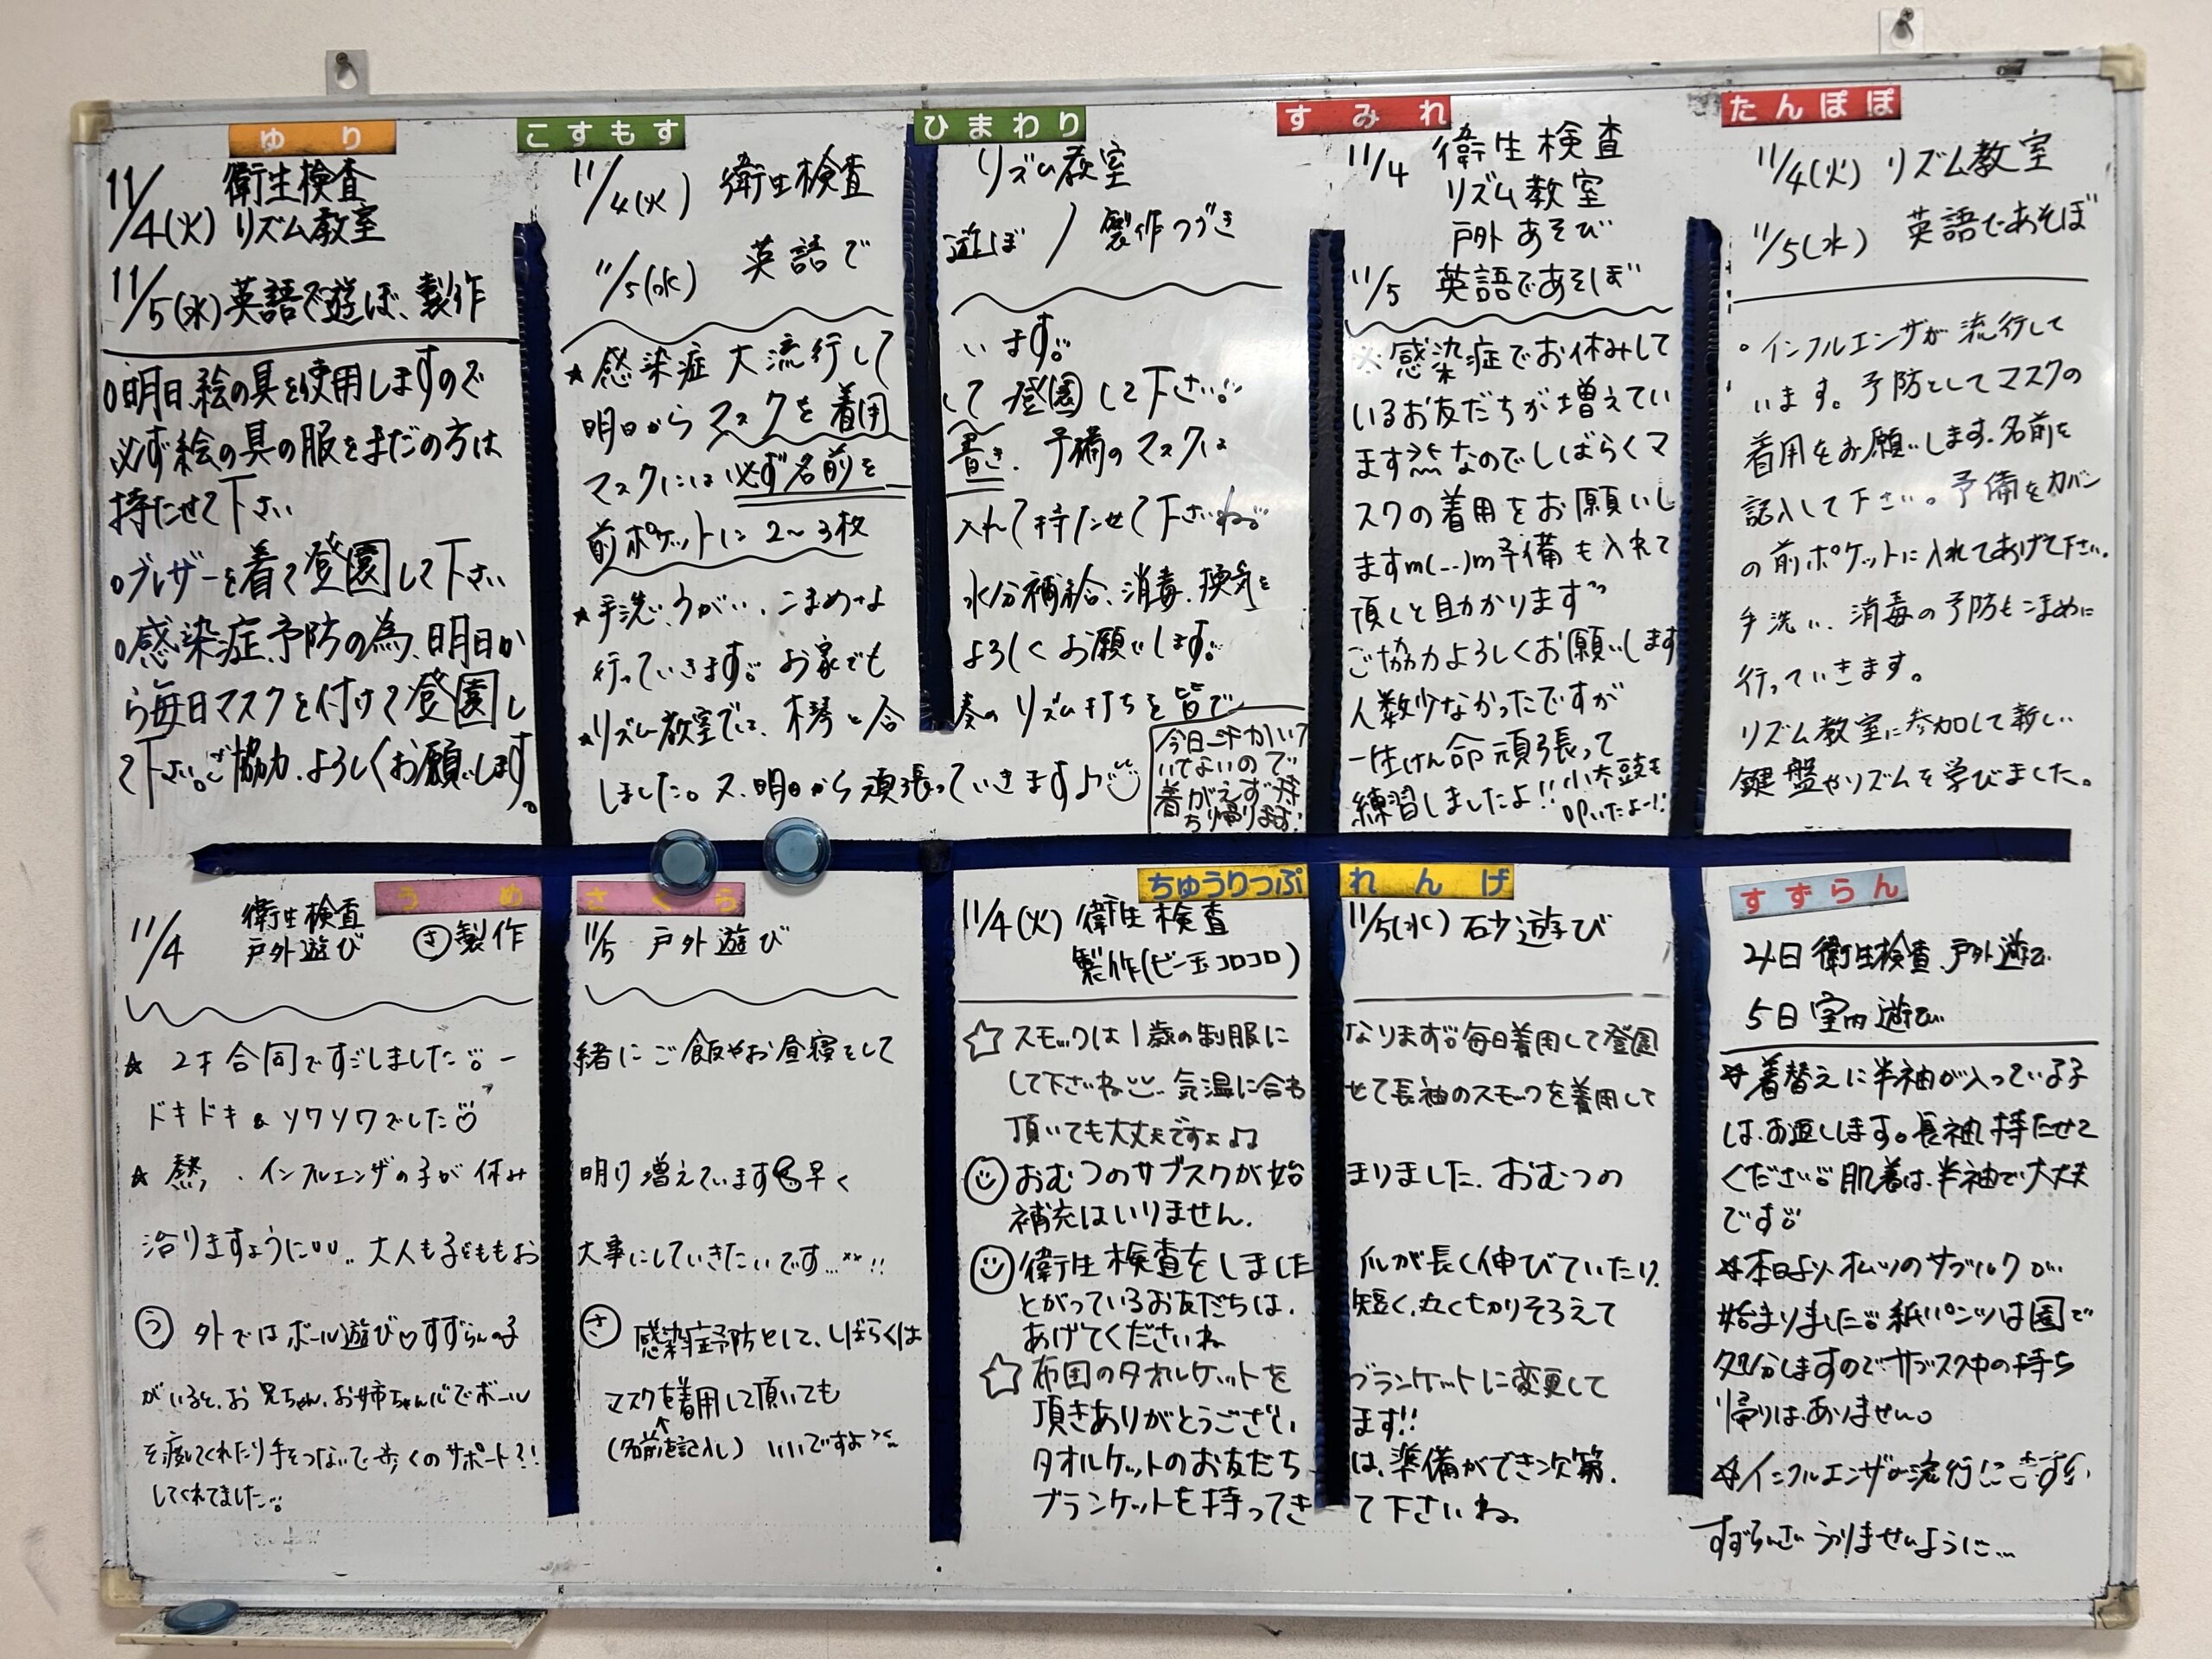 ゆり
11/4(火) 衛生検査
リズム教室
11/5(水)英語で遊ぼ、製作
○明日、絵の具を使用しますので
必ず絵の具の服をまだの方は
持たせて下さい
○ブレザーを着て登園して下さい
○感染症予防の為、明日か
ら毎日マスクを付けて登園し
て下さい。ご協力、よろしくお願いします。
こすもす ひまわり
11/4(火) 衛生検査 リズム教室
11/5(水) 英語で遊ぼ / 製作つづき
★感染症大流行しています。
明日からマスクを着用して登園して下さい。
マスクには必ず名前を書き、予備のマスクは
前ポケットに2〜3枚入れて持たせて下さいね。
★手洗い、うがい、こまめな水分補給、消毒、換気を
行っていきます。お家でもよろしくお願いします。
★リズム教室では、木琴と合奏のリズム打ちを皆で
しました。又、明日から頑張っていきます♪
今日汗かいて
いてないので
着がえず持
ち帰ります!
すみれ
11/4 衛生検査
リズム教室
戸外あそび
11/5 英語であそぼ
※感染症でお休みして
いるお友だちが増えてい
ます なのでしばらくマ
スクの着用をお願いし
ますm(..)m予備も入れて
頂くと助かります
ご協力よろしくお願いします
人数少なかったですが
一生けん命頑張って
練習しましたよ!!小太鼓も
叩いたよー!!
たんぽぽ
11/4(火) リズム教室
11/5(水) 英語であそぼ
○インフルエンザが流行して
います。予防としてマスクの
着用をお願いします。名前を
記入して下さい。予備をカバン
の前ポケットに入れてあげて下さい。
手洗い、消毒の予防もこまめに
行っていきます。
リズム教室に参加して新しい
鍵盤やリズムを学びました。
うめ さくら
11/4 衛生検査
戸外遊び ㋚製作 11/5 戸外遊び
★ 2才合同ですごしました。一緒にご飯やお昼寝をして
ドキドキ&ソワソワでした
★ 熱、インフルエンザの子が休み明け増えています 早く
治りますように 大人も子どももお大事にしていきたいです…!!
㋒ 外ではボール遊び♡すずらんの子
がいると、お兄ちゃん、お姉ちゃん心でボール
を渡してくれたり手をつないで歩くのサポート!!
してくれてました。
㋚ 感染症予防として、しばらくは
マスクを着用して頂いても
(名前を記入し) いいですよ
ちゅうりっぷ れんげ
11/4(火) 衛生検査 11/5(水) 砂遊び
製作(ビー玉コロコロ)
☆スモックは1歳の制服になります。毎日着用して登園
して下さいね 気温に合わせて長袖のスモックを着用して
頂いても大丈夫ですよ
おむつのサブスクが始まりました、おむつの
補充はいりません。
衛生検査をしました 爪が長く伸びていたり、
とがっているお友だちは、短く、丸く切りそろえて
あげてくださいね
☆布団のタオルケットをブランケットに変更して
頂きありがとうございます!!
タオルケットのお友だちは、準備ができ次第、
ブランケットを持ってきて下さいね。
すずらん
4日 衛生検査、戸外遊び
5日 室内遊び
☆着替えに半袖が入っている子
は、お返しします。長袖持たせて
ください。肌着は、半袖で大丈夫
です
☆本日より、オムツのサブスクが
始まりました。紙パンツは園で
処分しますのでサブスク中の持ち
帰りは、ありません。
☆インフルエンザの流行に
すずらんさん うつりませんように…